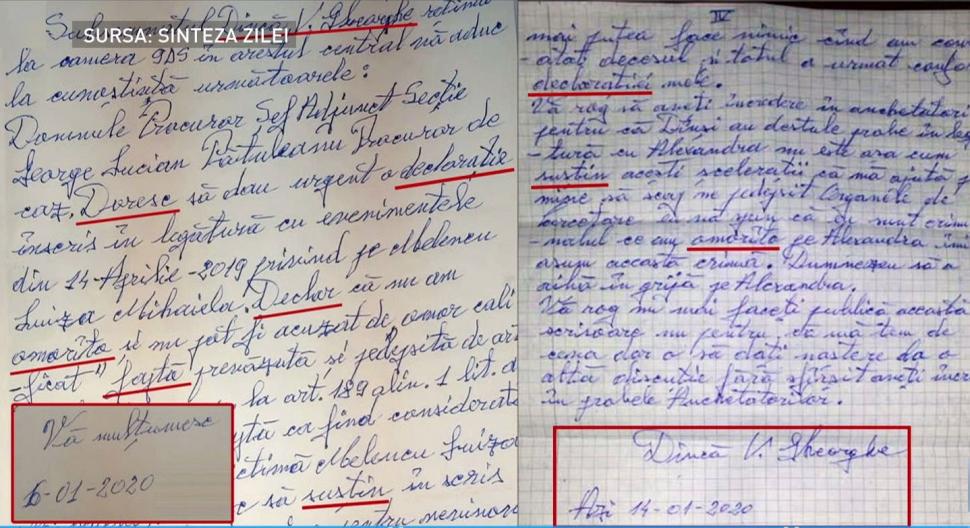 SURSA: SINTEZA ZILEI
Dincă V. Gheorghe
la camera 9DS în arestul central vă aduc
la cunoștință următoarele:
Domnule Procuror Șef Adjunct Secție
George Lucian Procuror de
caz. Doresc să dau urgent o declarație
înscris în legătură cu evenimentele
din 14-Aprilie-2019 privind pe Melencu
Luiza Mihaela. Declar că nu am
omorîto și nu pot fi acuzat de omor cali
-ficat" fapta prevazută și pedepsită de
la art. 189 alin. 1 lit. d
ca fiind considerat
Melencu Luiza
să susțin în scris
Vă mulțumesc
6-01-2020
IV
mai putea face nimic cînd am cons
-atat decesul și totul a urmat
declarației mele.
Vă rog să aveți încredere în anchetatori
pentru că Dînși au destule probe în legă
-tură cu Alexandra nu este așa cum
susțin acești scelerații că mă ajută pe
mine să scap ne pedepsit Organele de
cercetare eu nă spun că eu sunt crimi
-nalul ce am omorîto pe Alexandra îmi
asum această crimă. Dumnezeu să o
aibă în grija pe Alexandra.
Vă rog nu mai faceți publică această
scrisoare nu pentru că mă tem de
ceva dar o să dați naștere la o
altă discuție fără sfîrșit aveți încr
în probele Anchetatorilor.
Dincă V. Gheorghe
Azi 14-01-2020